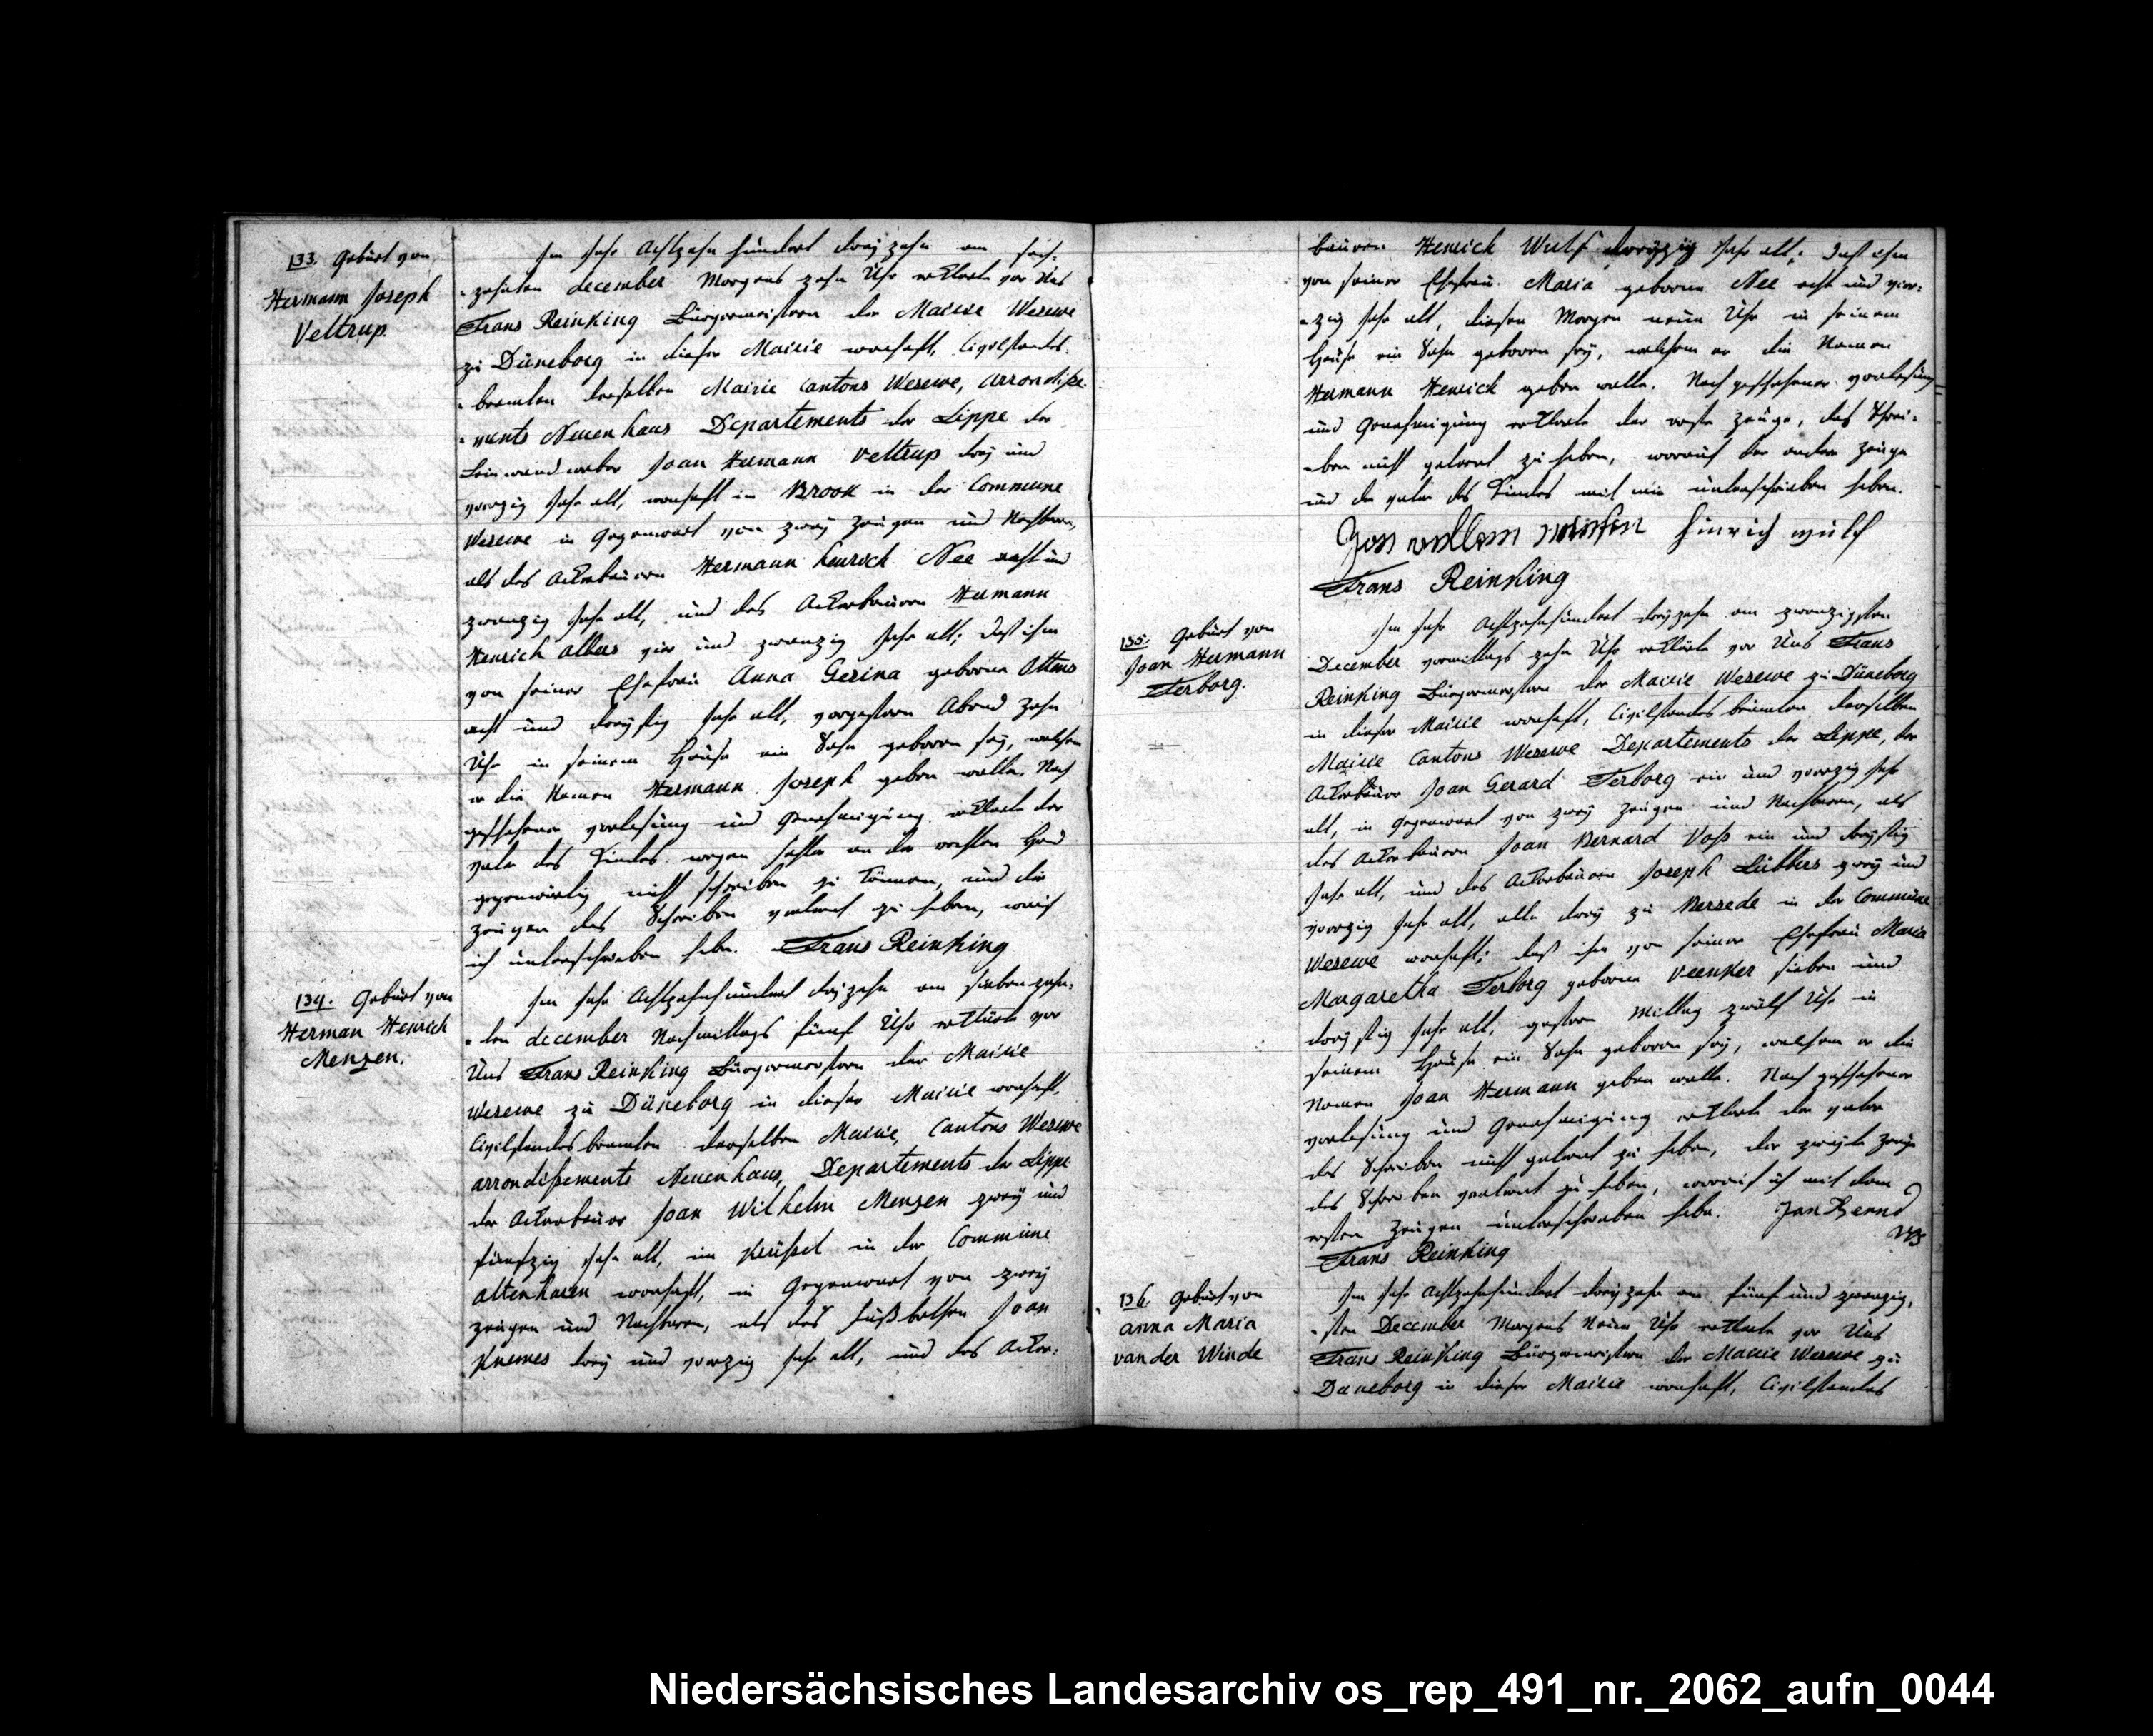 133. Geburt von
Hermann Joseph
Veltrup.
Im Jahr Achtzehn hundert dreyzehn am sech-
-zehnten december Morgens zehn Uhr erklärte vor Uns
Frans Reinking Bürgermeistern der Mairie Wesuwe
zu Düneborg in dieser Mairie wonhaft, Civilstands-
-beamten derselben Mairie Cantons Wesuwe, arrondisse-
-ments Neuenhaus Departements der Lippe der
Leinwandweber Joan Hermann Veltrup drey und
vierzig Jahr alt, wonhaft in Brook in der Commune
Wesuwe in Gegenwart von zwey Zeugen und Nachbaren,
als des Ackerbauern Hermann Henrich Nee acht und
zwanzig Jahr alt, und des Ackerbauern Hermann
Henrich Albers vier und zwanzig Jahr alt; daß ihm
von seiner Ehefrau Anna Gesina geborne Ottens
acht und dreyßig Jahr alt, vorgestern Abend zehn
Uhr in seinem Hause ein Sohn geboren sey, welchem
er die Namen Hermann Joseph geben wolle. Nach
geschehener Vorlesung und Genehmigung erklärte der
Vater des Kindes wegen Fehler an der rechten Hand
gegenwärtig nicht schreiben zu können, und die
Zeugen das Schreiben verlernt zu haben,
ich unterschrieben habe. Frans Reinking
134. Geburt von
Herman Henrich
Menzen.
Im Jahr Achtzehnhundert dreyzehn am siebenzehn-
-ten december Nachmittags fünf Uhr erklärte vor
Uns Frans Reinking Bürgermeistern der Mairie
Wesuwe zu Düneborg in dieser Mairie wonhaft,
Civilstandsbeamten derselben Mairie, Cantons Wesuwe
arrondißements Neuenhaus, Departements der Lippe
der Ackerbauer Joan Wilhelm Menzen zwey und
fünfzig Jahr alt, im Krüßel in der Commune
Altenharen wonhaft, in Gegenwart von zwey
Zeugen und Nachbaren, als des Fußbothen Joan
Knemes drey und vierzig Jahr alt, und des Acker-
bauern Henrich Wulf dreyzig Jahr alt; daß ihm
von seiner Ehefrau Maria geborne Nee acht und vier-
-zig Jahr alt, diesen Morgen neun Uhr in seinem
Hause ein Sohn geboren sey, welchem er die Namen
Hermann Henrich geben wolle. Nach geschehener Vorlesung
und Genehmigung erklärte der erste Zeuge, das Schrei-
-ben nicht gelernt zu haben, worauf der andere Zeuge
und der Vater des Kindes mit mir unterschrieben haben.
hinrich wulf
Frans Reinking
135. Geburt von
Joan Hermann
Terborg.
Im Jahr Achtzehnhundert dreyzehn am zwanzigsten
December vormittags zehn Uhr erklärte vor Uns Frans
Reinking Bürgermeistern der Mairie Wesuwe zu Düneborg
in dieser Mairie wonhaft, Civilstandsbeamten derselben
Mairie Cantons Wesuwe Departements der Lippe, der
Ackerbauer Joan Gerard Terborg ein und vierzig Jahr
alt, in Gegenwart von zwey Zeugen und Nachbaren, als
des Ackerbauern Joan Bernard Voß ein und dreyßig
Jahr alt, und des Ackerbauern Joseph Lübbers zwey und
vierzig Jahr alt, alle drey zu Versede in der Commune
Wesuwe wonhaft; daß ihm von seiner Ehefrau Maria
Margaretha Terborg geborne Veenker sieben und
dreyßig Jahr alt, gestern Mittag zwölf Uhr in
seinem Hause ein Sohn geboren sey, welchem er die
Namen Joan Hermann geben wolle. Nach geschehener
Vorlesung und Genehmigung erklärte der Vater
das Schreiben nicht gelernt zu haben, der zweyte Zeuge
das Schreiben verlernt zu haben, worauf ich mit dem
ersten Zeugen unterschrieben habe. Jan Bernd
Frans Reinking
136. Geburt von
Anna Maria
van der Winde
Im Jahr Achtzehnhundert dreyzehn am fünf und zwanzig-
-sten December Morgens Neun Uhr erklärte vor Uns
Frans Reinking Bürgermeistern der Mairie Wesuwe zu
Duneborg in dieser Mairie wonhaft, Civilstandes
Niedersächsisches Landesarchiv os_rep_491_nr._2062_aufn_0044